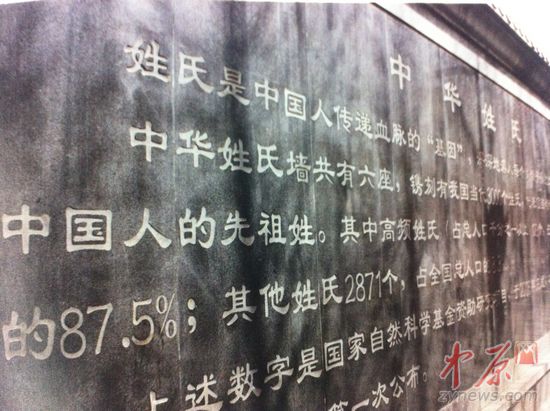 中华姓氏
姓氏是中国人传递血脉的“基因”，
中华姓氏墙共有六座，镌刻有我国当代3000个姓氏
中国人的先祖姓。其中高频姓氏（占总人口千分之一以上
的87.5%；其他姓氏2871个，占全国总人口的
上述数字是国家自然科学基金赞助研究项目
第一次公布。
中原网
zynews.com